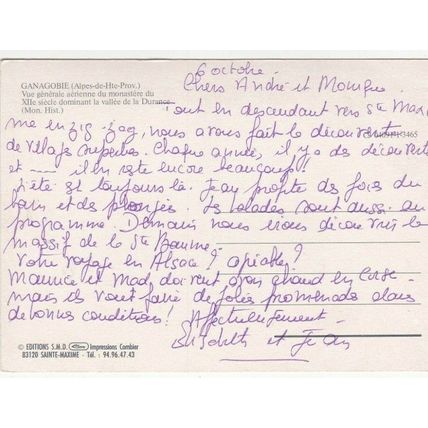 GANAGOBIE (Alpes-de-Hte-Prov.)
Vue générale aérienne du monastère du
XIIe siècle dominant la vallée de la Durance
(Mon. Hist.)
6 octobre.
Chers André et Monique.
Tout en descendant vers Ste Maxi
me en zig-zag, nous avons fait la découverte
de villages superbes. Chaque année, il y a des découvertes
et --- il en reste encore beaucoup!
L'été est toujours là. Jean profite des joies du
bain et des plongées. Les balades sont aussi au
programme. Demain nous irons découvrir le
massif de la Ste Baume.
Votre voyage en Alsace? agréable?
Maurice et Mado doivent avoir chaud en Corse
mais ils vont faire de jolies promenades dans
de bonnes conditions! Affectueusement.
et Jean
© EDITIONS S.M.D. Impressions Combier
83120 SAINTE-MAXIME - Tél. : 94.96.47.43